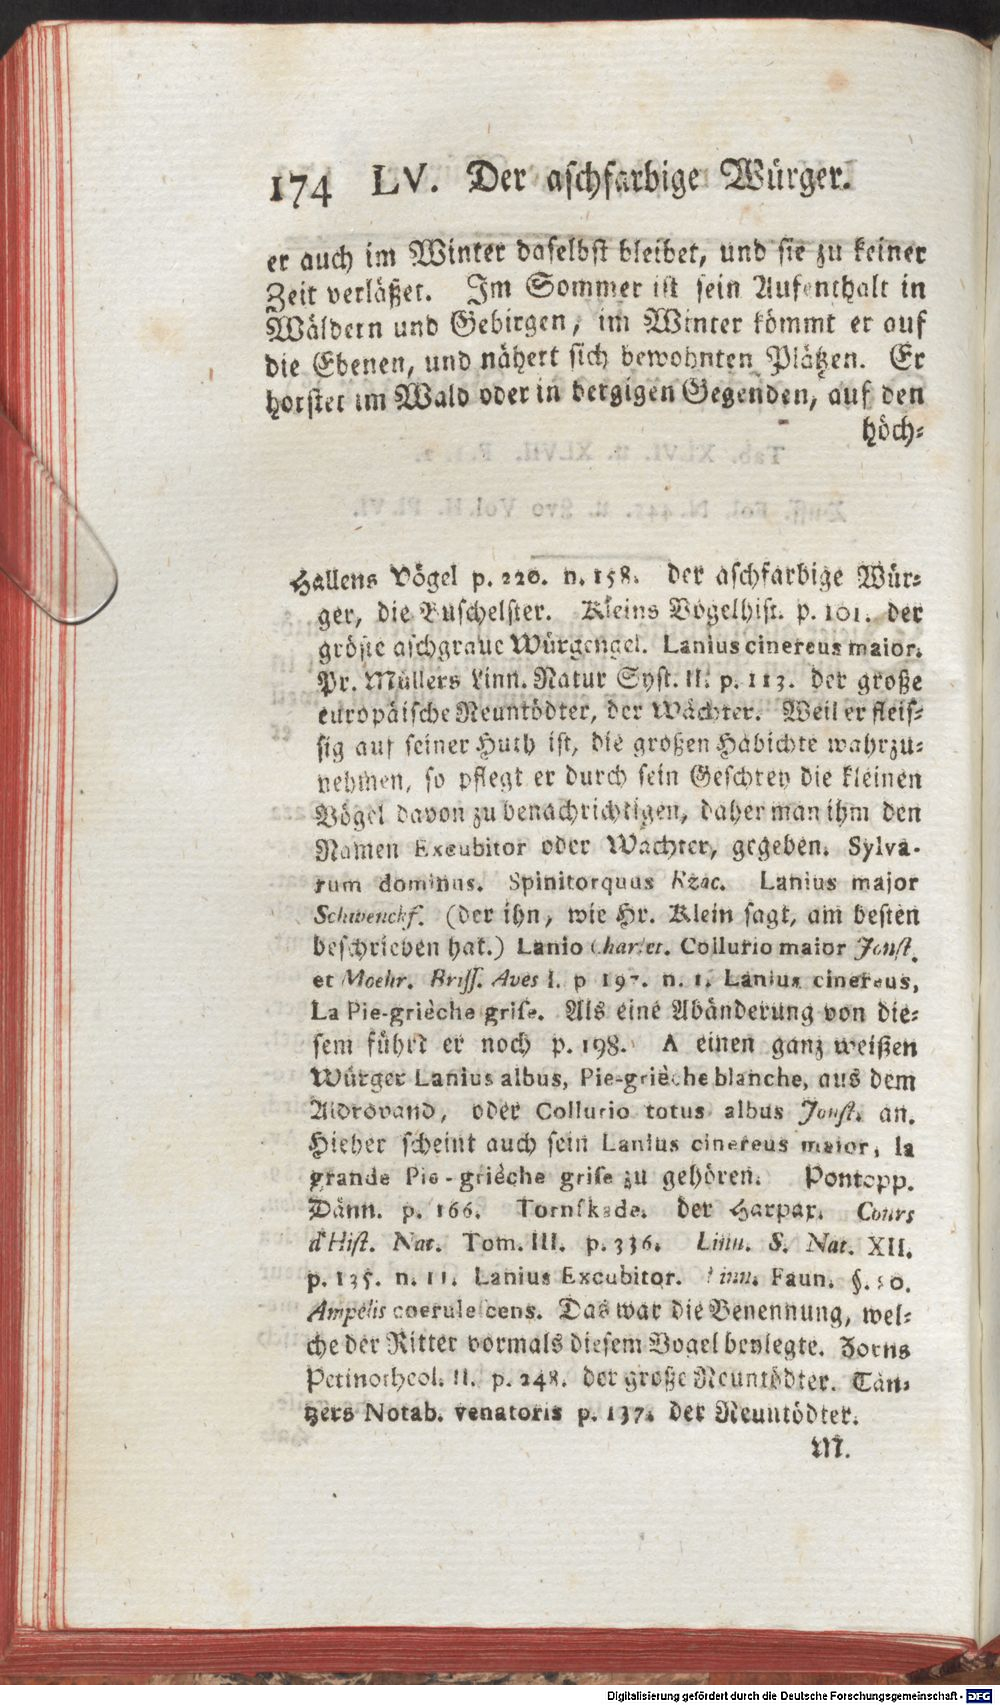 174 LV. Der aschfarbige Würger.
er auch im Winter daselbst bleibet, und sie zu keiner
Zeit verläßet. Im Sommer ist sein Aufenthalt in
Wäldern und Gebirgen, im Winter kömmt er auf
die Ebenen, und nähert sich bewohnten Plätzen. Er
horstet im Wald oder in bergigen Gegenden, auf den
höch-
Hallens Vögel p. 220. n. 158. der aschfarbige Wür-
ger, die Buschelster. Kleins Vogelhist. p. 101. der
größte aschgraue Würgengel. Lanius cinereus maior.
Pr. Müllers Linn. Natur Syst. II. p. 113. der große
europäische Neuntödter, der Wächter. Weil er fleis-
sig auf seiner Huth ist, die großen Habichte wahrzu-
nehmen, so pflegt er durch sein Geschrey die kleinen
Vögel davon zu benachrichtigen, daher man ihm den
Namen Excubitor oder Wächter, gegeben. Sylva-
rum dominus. Spinitorquus Rzac. Lanius major
Schwenckf. (der ihn, wie Hr. Klein sagt, am besten
beschrieben hat.) Lanio Charlet. Collurio maior Jonst.
et Moehr. Briss. Aves I. p 197. n. 1. Lanius cinereus,
La Pie-grièche grise. Als eine Abänderung von die-
sem führt er noch p. 198. A einen ganz weißen
Würger Lanius albus, Pie-grièche blanche, aus dem
Aldrovand, oder Collurio totus albus Jonst. an.
Hieher scheint auch sein Lanius cinereus maior, la
grande Pie-grièche grise zu gehören. Pontopp.
Dänn. p. 166. Tornskade. der Harpax. Cours
d'Hist. Nat. Tom. III. p. 336. Linn. S. Nat. XII.
p. 135. n. 11. Lanius Excubitor. Linn. Faun. §. 80.
Ampelis coerulescens. Das war die Benennung, wel-
che der Ritter vormals diesem Vogel beylegte. Zorns
Petinotheol. II. p. 248. der große Neuntödter. Tän-
tzers Notab. venatoris p. 137. der Neuntödter.
M.
Digitalisierung gefördert durch die Deutsche Forschungsgemeinschaft - DFG